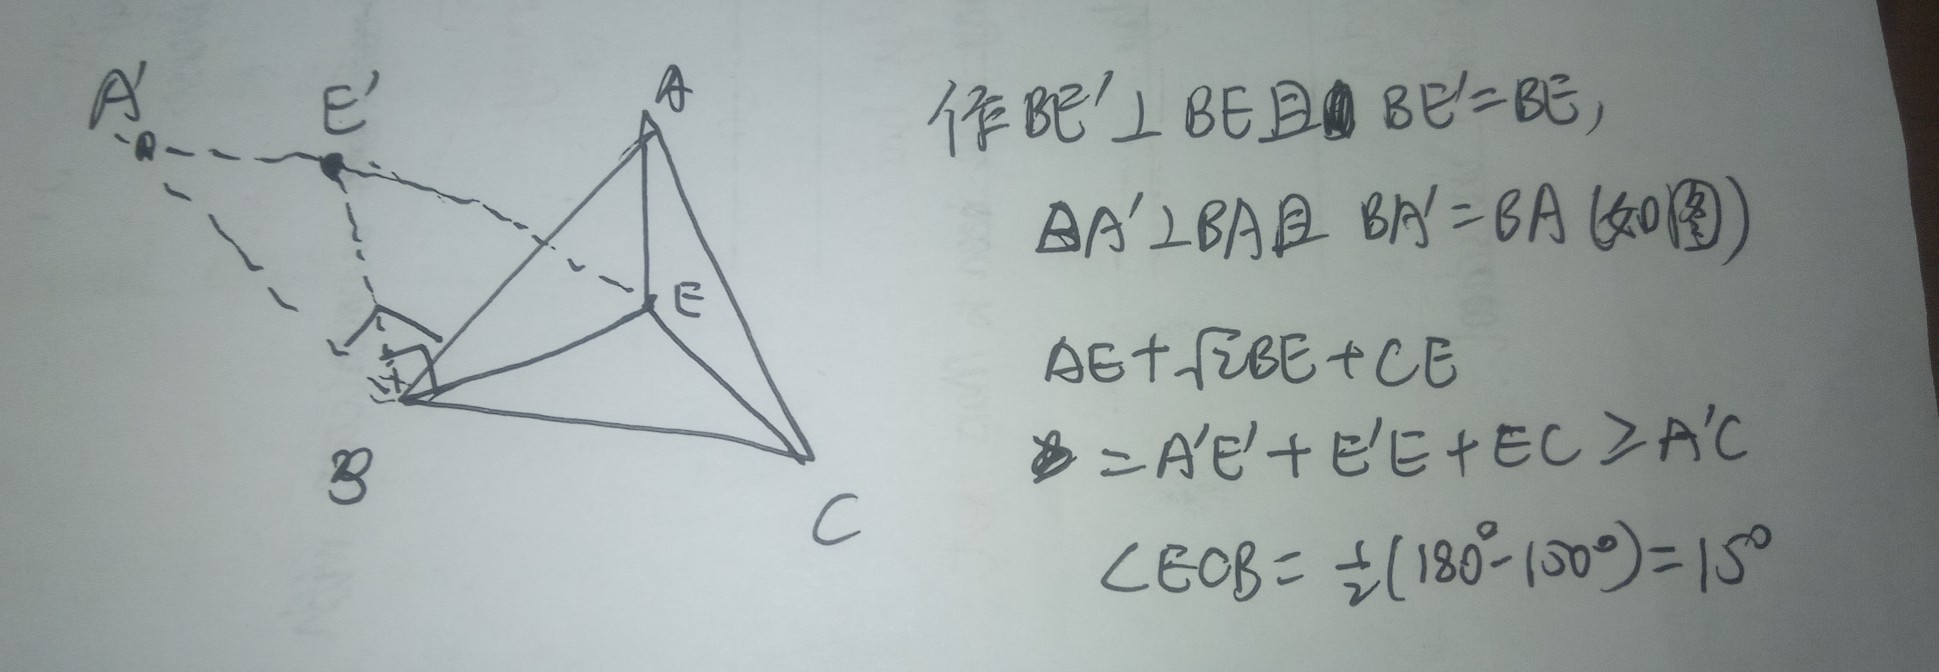 A'
E'
A
E
B
C
作BE'⊥BE且BE'=BE,
BA'⊥BA且BA'=BA(如图)
AE+√2BE+CE
=A'E'+E'E+EC≥A'C
∠ECB=½(180°-150°)=15°